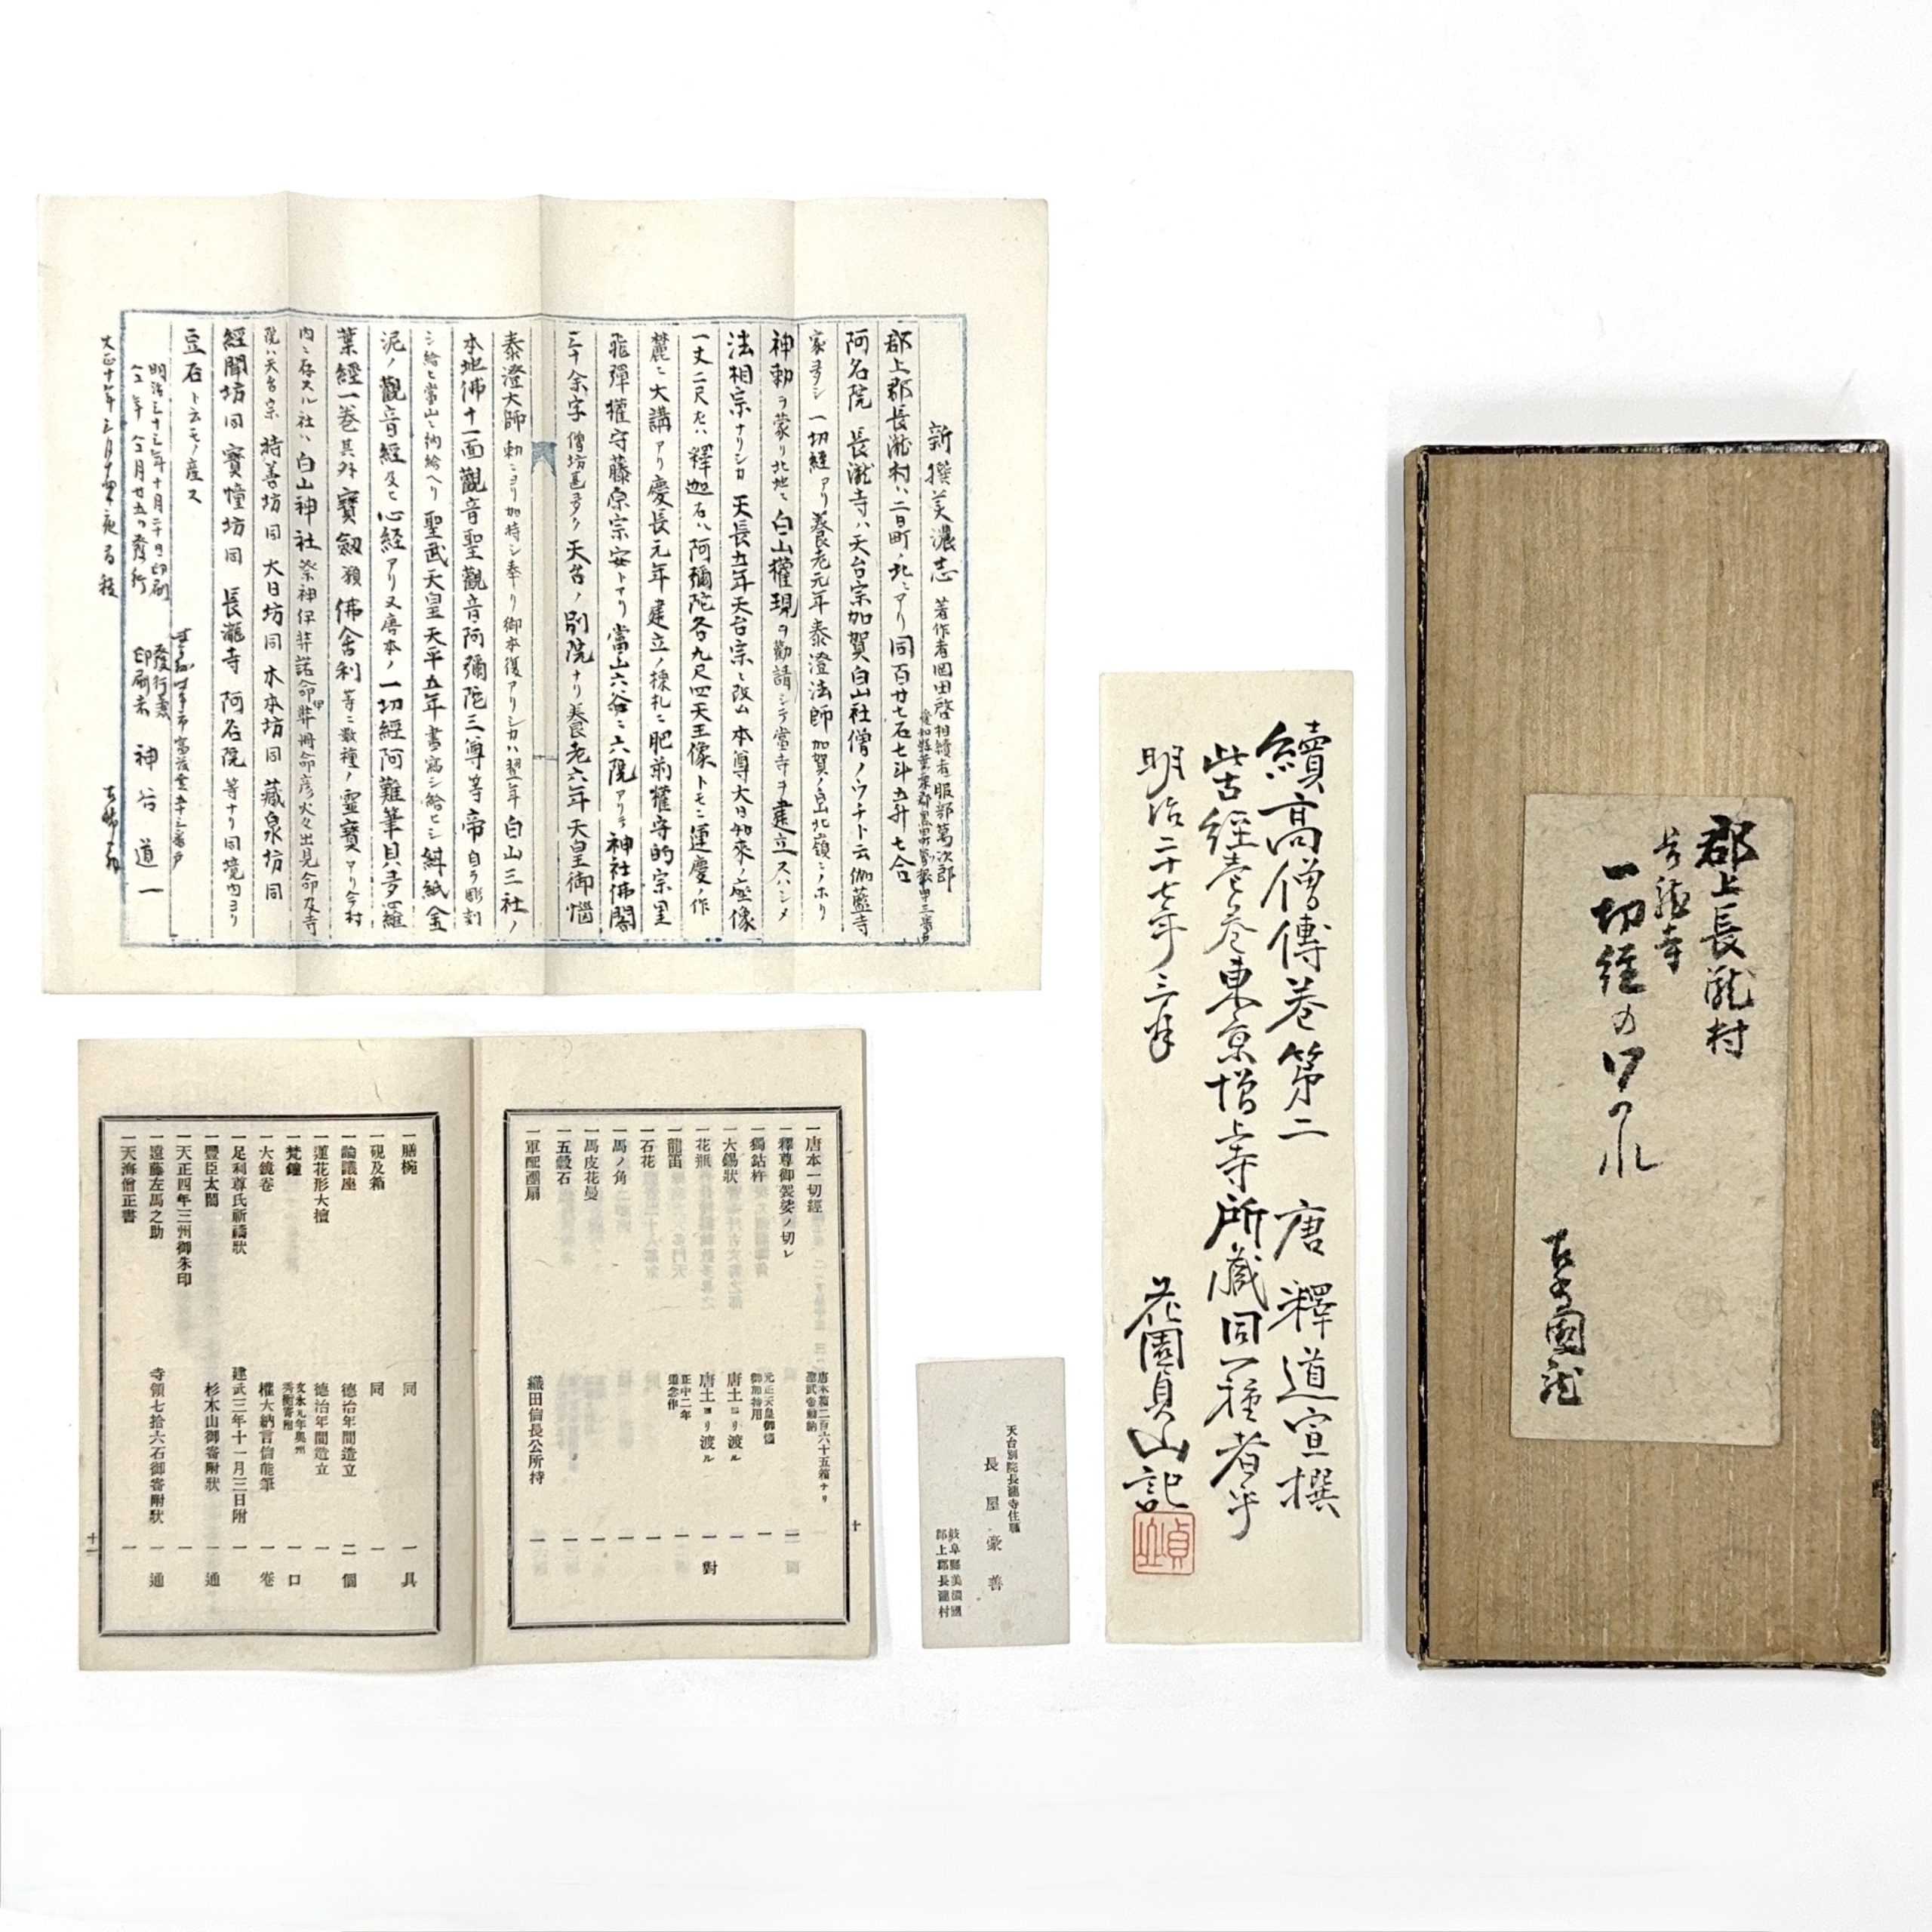 郡上長瀧村
長瀧寺
一切經のワカレ
續高僧傳卷第二 唐 釋道宣撰
此古経壱卷東京増上寺所藏同一種者乎
明治二十七年三月
花園貞山記
新撰美濃志 著作者岡田啓 相續者服部萬次郎
郡上郡長瀧村ハ二日町ノ北ニアリ同百廿七石七斗五升七合
阿名院 長瀧寺ハ天台宗加賀白山社僧ノウチト云伽藍寺
家多シ 一切經アリ養老元年泰澄法師加賀ノ白山北嶺ニノホリ
神勅ヲ蒙リ此地ニ白山權現ヲ勸請シテ當寺ヲ建立スハシメ
法相宗ナリシカ天長五年天台宗ニ改ム本尊大日如來ノ座像
一丈二尺左ハ釋迦右ハ阿彌陀各九尺四天王像トモニ運慶ノ作
麓ニ大講アリ慶長元年建立ノ棟札ニ肥前權守的宗里
飛彈權守藤原宗安トアリ當山六谷ニ六院アリテ神社佛閣
三十余字僧坊甚多ク天台ノ別院ナリ養老六年天皇御惱
泰澄大師勅ニヨリ加持シ奉リ御本復アリシカハ翌年白山三社ノ
本地佛十一面觀音聖觀音阿彌陀三尊等帝自ラ彫刻
シ給ヒ當山ニ納給ヘリ聖武天皇天平五年書寫シ給ヒシ紺紙金
泥ノ觀音經及ヒ心経アリ又唐本ノ一切經阿難筆貝多羅
葉經一卷其外寶劔猿佛舍利等ニ數種ノ靈寶アリ今村
内ニ存スル社ハ白山神社祭神伊弉諾命伊弉冊命彦火々出見命及寺
院ハ天台宗持善坊同大日坊同本本坊同藏泉坊同
經聞坊同寶幢坊同長瀧寺阿名院等ナリ同境内ヨリ
豆石ト云モノ産ス
明治三十三年十月二十日印刷
仝年仝月廿五日發行
發行兼
印刷者 神谷道一
一唐本一切經 唐本箱二百六十五箱ナリ
一釋尊御袈裟ノ切レ
一獨鈷杵 元正天皇御惱御加持用 一
一大錫狀 唐土ヨリ渡ル 一
一花瓶 唐土ヨリ渡ル 一對
一龍笛 正中二年道念作 一
一石花 一
一馬ノ角 一
一馬皮花曼 一
一五穀石 一
一軍配團扇 織田信長公所持 一
十
一膳椀 同 一具
一硯及箱 同 一
一論議座 德治年間造立 二個
一蓮花形大檀 德治年間造立 一
一梵鐘 文永元年奥州秀衡寄附 一口
一大鏡卷 權大納言信能筆 一卷
一足利尊氏祈禱狀 建武三年十一月三日附 一
一豐臣太閤 杉木山御寄附狀 一通
一天正四年三州御朱印 一
一遠藤左馬之助 寺領七拾六石御寄附狀 一通
一天海僧正書 一
十一
天台別院長瀧寺住職
長屋豪善
岐阜縣美濃國
郡上郡長瀧村